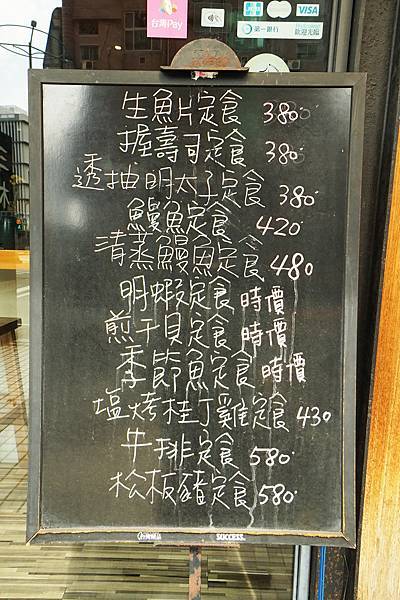 台灣Pay
第一銀行
歡迎光臨
VISA
生魚片定食 380
握壽司定食 380
透抽明太子定食 380
鰻魚定食 420
清蒸鰻魚定食 480
明蝦定食 時價
煎干貝定食 時價
季節魚定食 時價
塩烤桂丁雞定食 430
牛排定食 580
松板豬定食 580
SUCCESS